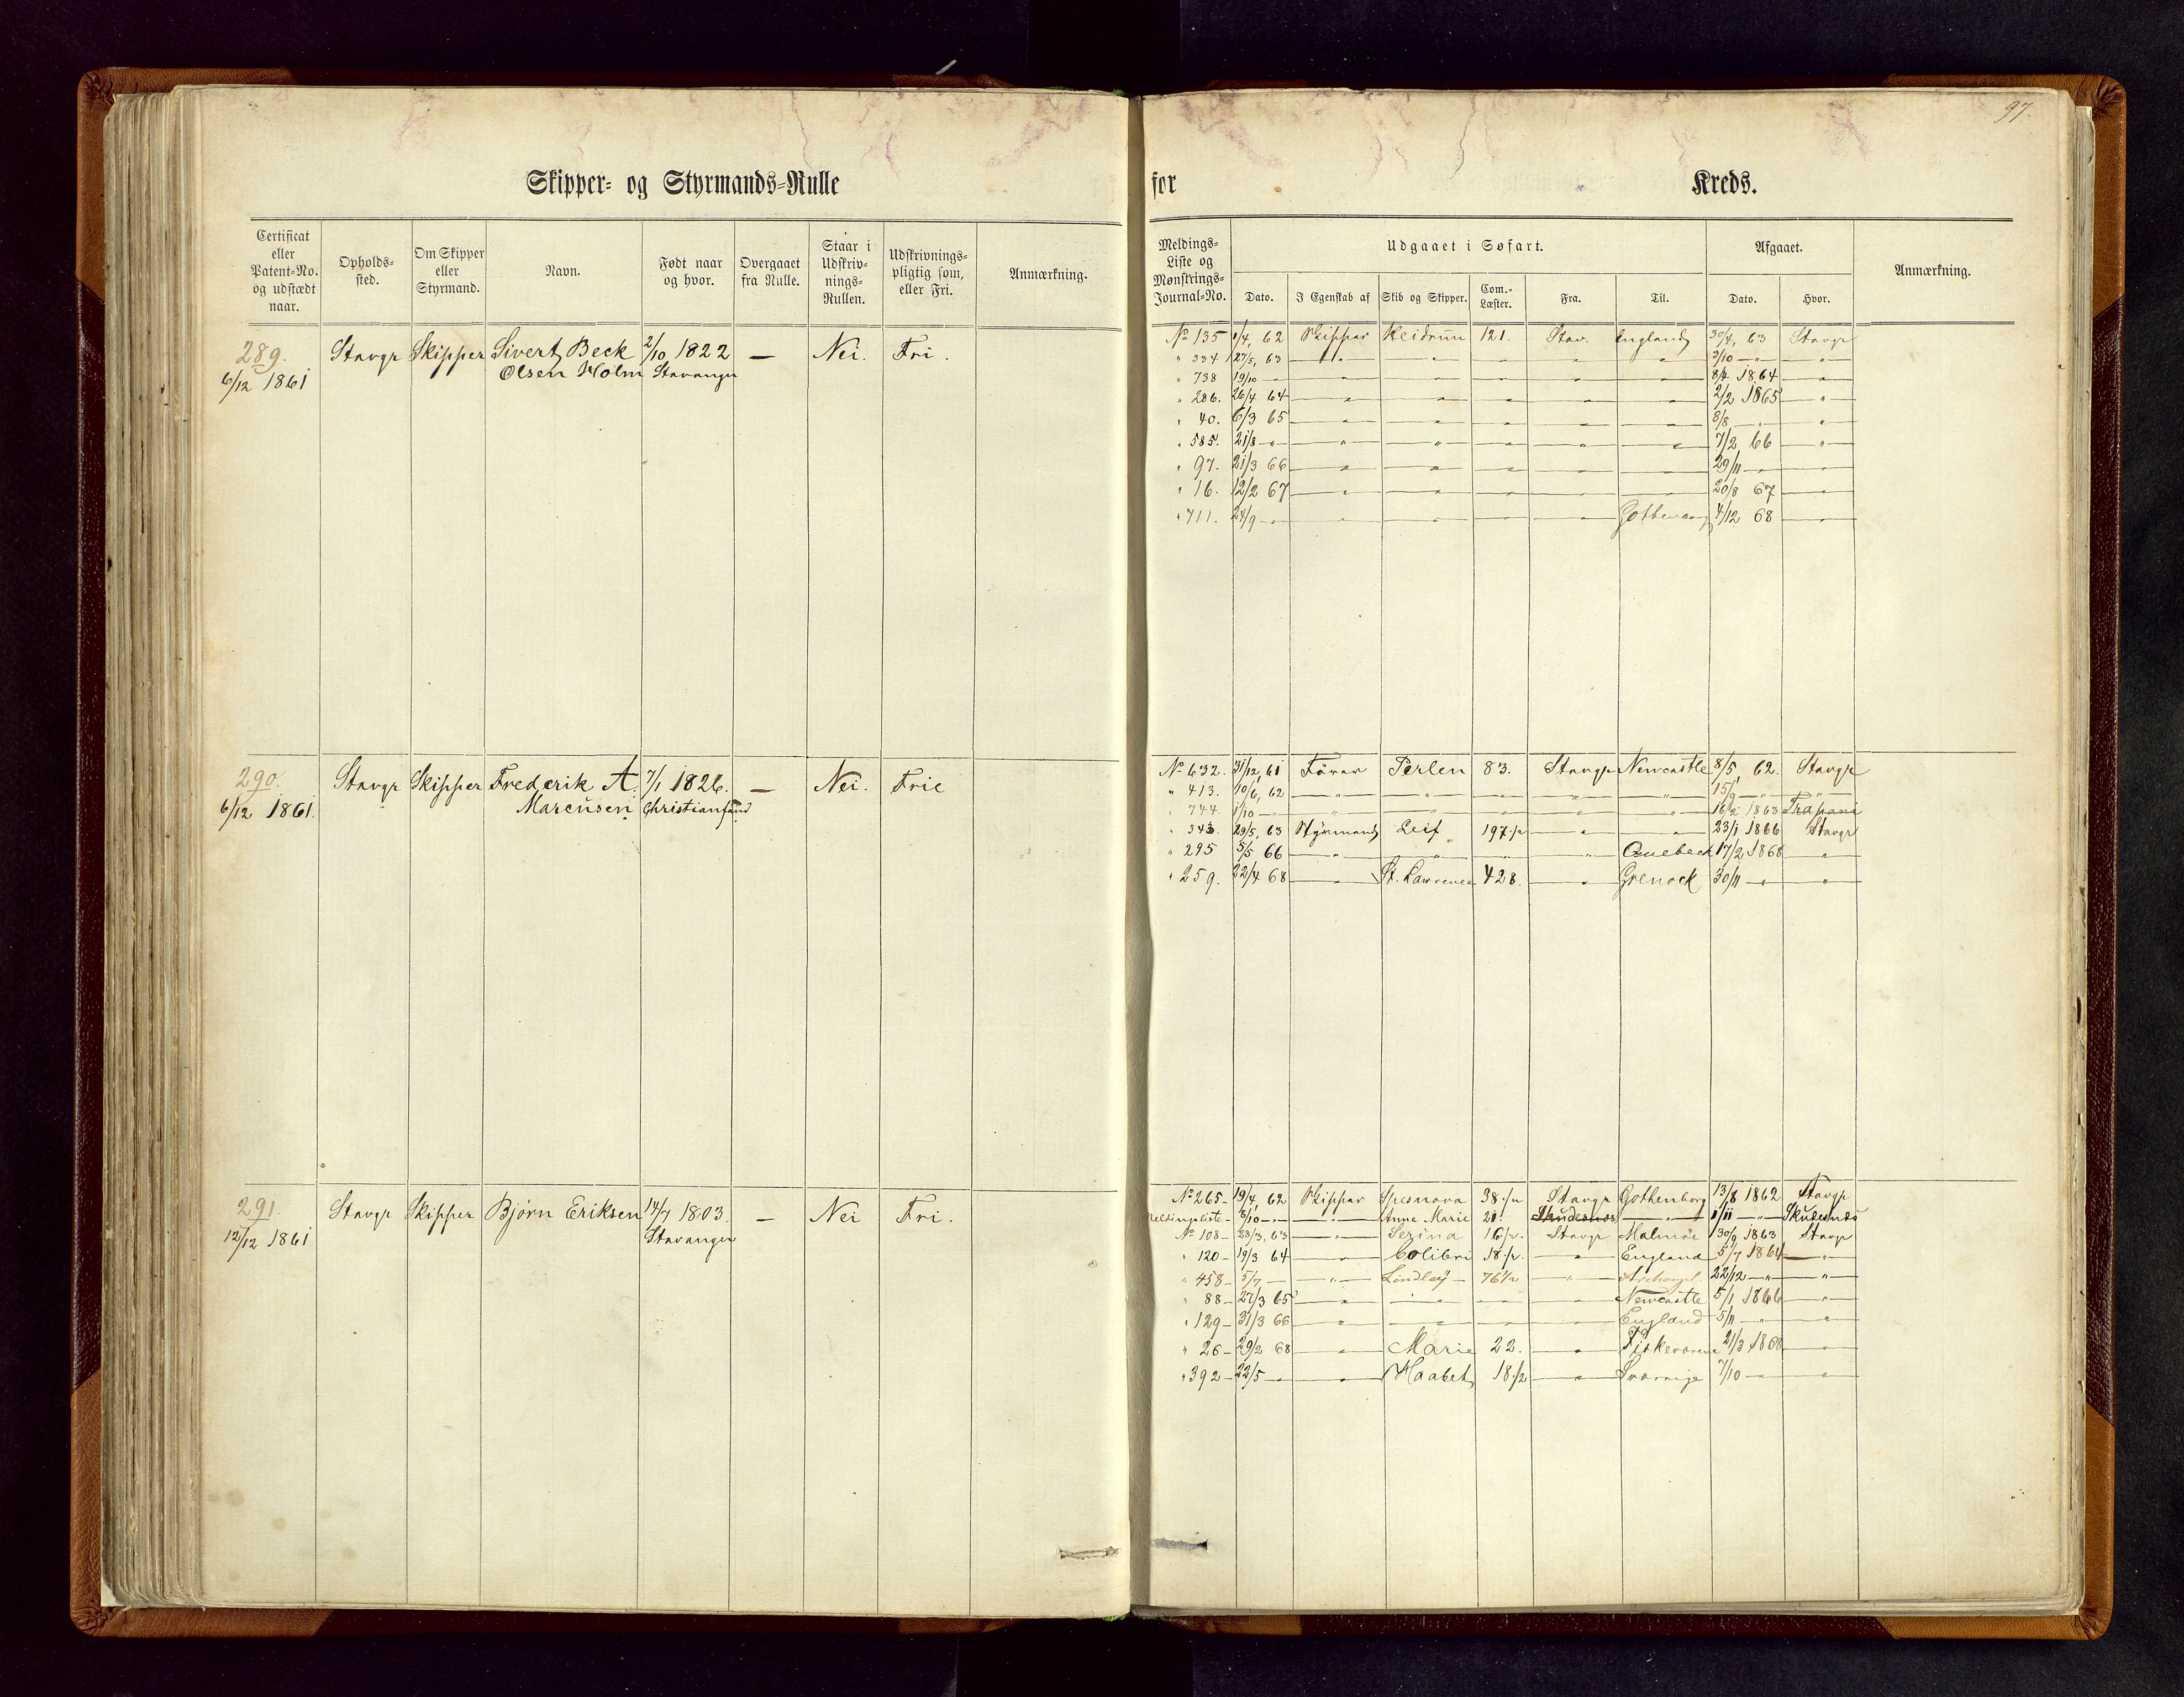 97.
Skipper- og Styrmands-Rulle
for Kreds.
Certificat eller Patent-No. og udstædt naar. Opholds-sted. Om Skipper eller Styrmand. Navn. Født naar og hvor. Overgaaet fra Rulle. Staar i Udskriv-nings-Rullen. Udskrivnings-pligtig som, eller Fri. Anmærkning.
289. Stavgr Skipper Sivert Beck 2/10 1822 — Nei. Fri.
6/12 1861 Olsen Holm Stavanger
290. Stavgr Skipper Frederik A. 7/1 1826. — Nei. Frie
6/12 1861. Marcusen. Christiansund
291. Stavgr Skipper Bjørn Eriksen 14/7 1803. — Nei Fri.
12/12 1861 Stavanger
Meldings-Liste og Mønstrings-Journal-No. Udgaaet i Søfart. Afgaaet. Anmærkning.
Dato. I Egenskab af Skib og Skipper. Com.-Læster. Fra. Til. Dato. Hvor.
No 135 1/4, 62 Skipper Heidrun 121. Stav. England 30/4, 63 Stavgr
" 334 27/5, 63 " " " " " 3/10 — " — "
" 738 19/10 — " " " " " " 8/4 1864 "
" 286. 26/4 64 " " " " " 2/2 1865 "
" 40. 6/3 65 " " " " " 8/8 — " "
" 585. 21/8 — " " " " " " 7/2 66 "
" 97. 21/3 66 " " " " " 29/11 — " "
" 16. 12/2 67 " " " " " 20/8 67 "
" 711. 24/9 — " " " " " Gothenborg 4/12 68 "
No 632. 31/12, 61 Fører Perlen 83. Stavgr Newcastle 8/5, 62. Stavgr
" 413. 10/6, 62 " " " " " 15/9 — " "
" 744 1/10 — " " " " " " 16/2 1863 Trapani
" 343. 29/5, 63 Styrmand Leif 197 1/2 " " 23/1 1866 Stavgr
" 295 5/5 66 " " " " Quebeck 17/2 1868 "
" 259. 22/4 68 " St. Lawrence 428. " Grenock 30/11 — " "
No 265 — 19/4, 62 Skipper Spesnova 38 1/2 Stavgr Gothenborg 13/8 1862 Stavgr
Meldingsliste — 8/10 — " — " Anne Marie 21. Skudesnæs " 1/11 — " Skudesnæs
No 108 — 28/3, 63 " 16 1/2. Stavgr Malmöe 30/9 1863 Stavgr
" 120 — 19/3 64 " Colibri 18 1/2. " England 5/7 1864 "
" 458 — 5/7 — " Lindley — 76 1/2 " Archangl. 22/12 — " "
" 88 — 27/3 65 " " " " Newcastle 5/1 1866 "
" 129 — 31/3 66 " " " " England 5/11 — " "
" 26 — 29/2 68 " Marie 22. " 21/3 1868 "
" 392 — 22/5 — " " Haabet 18 1/2 " Sverrige 7/10 — " "